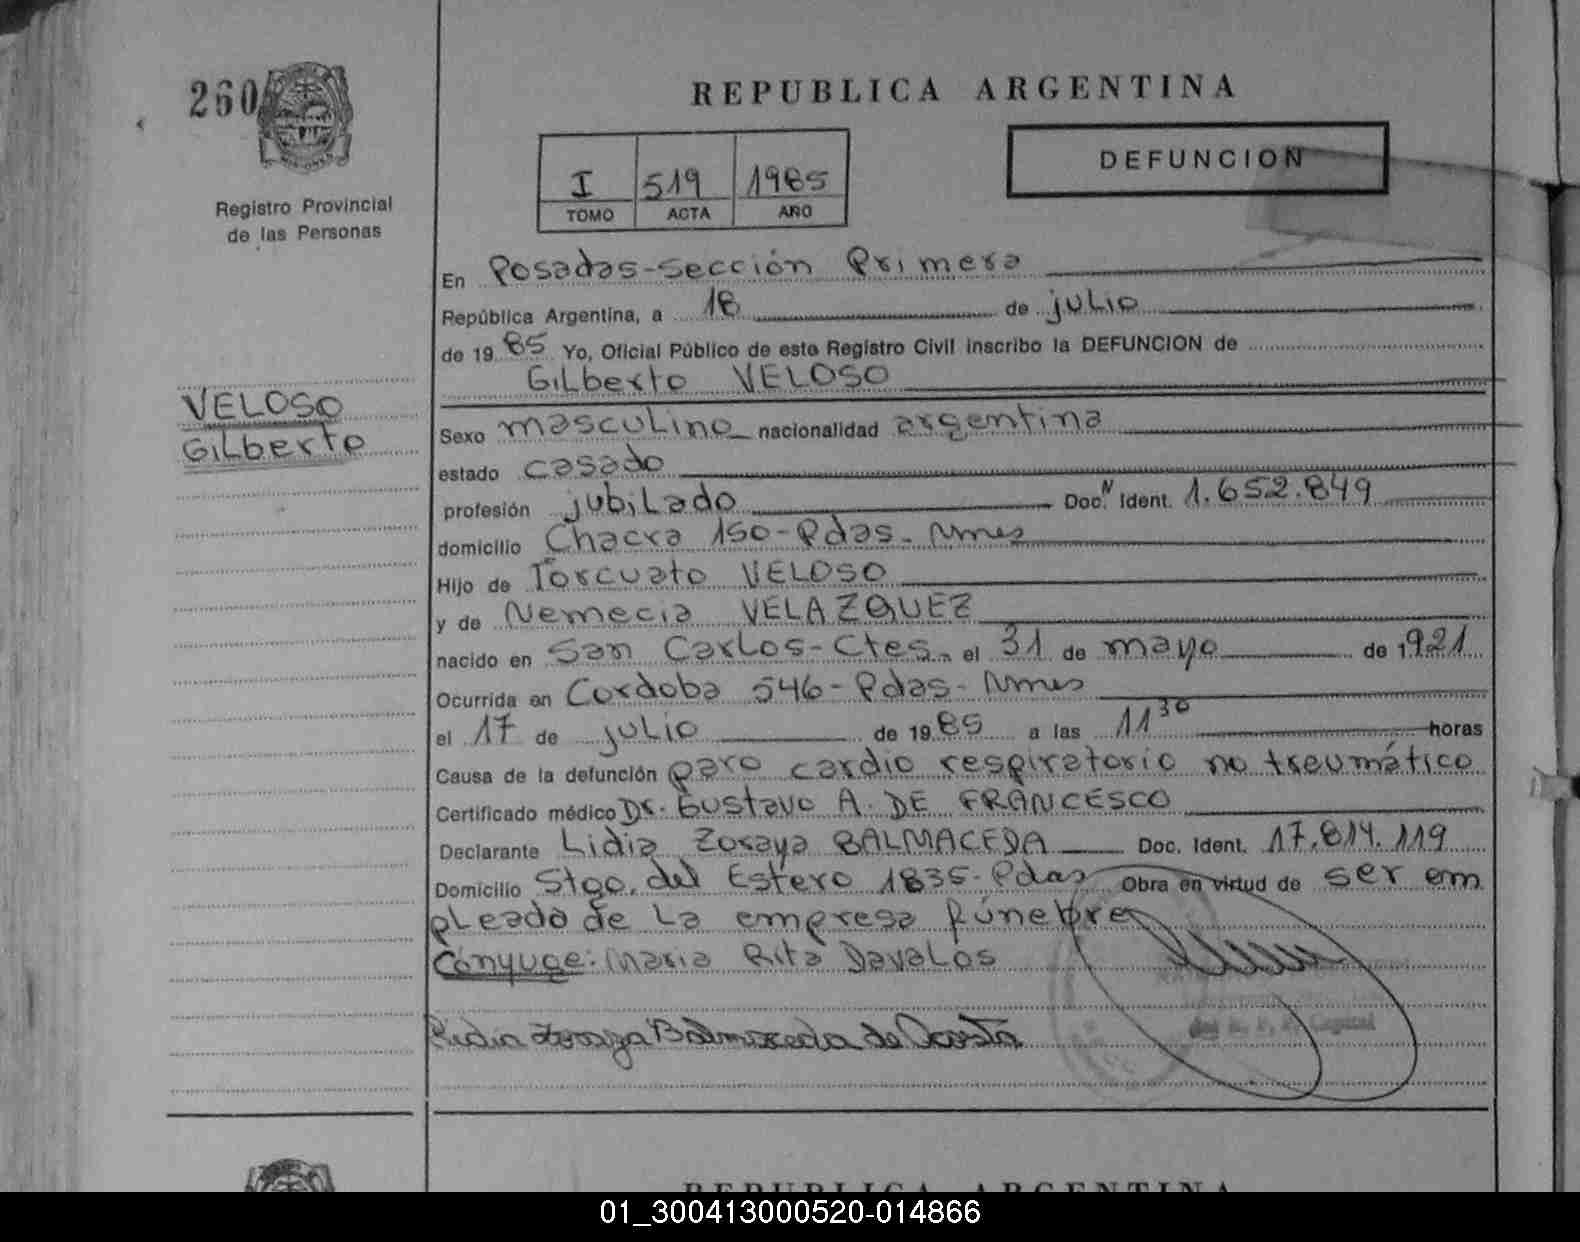 260
REPUBLICA ARGENTINA
I 519 1985
TOMO ACTA AÑO
DEFUNCION
Registro Provincial
de las Personas
En Posadas-sección Primera
República Argentina, a 18 de julio
de 1985 Yo, Oficial Público de este Registro Civil inscribo la DEFUNCION de
Gilberto VELOSO
VELOSO
Gilberto
Sexo masculino nacionalidad argentina
estado casado
profesión jubilado Doc. N Ident. 1.652.849
domicilio Chacra 150-Pdas. Mnes
Hijo de Torcuato VELOSO
y de Nemecia VELAZQUEZ
nacido en San Carlos-Ctes. el 31 de mayo de 1921
Ocurrida en Cordoba 546-Pdas-Mnes
el 17 de julio de 1985 a las 11 30 horas
Causa de la defunción paro cardio respiratorio no traumático
Certificado médico Dr. Gustavo A. DE FRANCESCO
Declarante Lidia Zoraya BALMACEDA Doc. Ident. 17.814.119
Domicilio Stgo. del Estero 1835-Pdas Obra en virtud de ser em
pleada de la empresa fúnebre
Cónyuge: Maria Rita Davalos
Lidia Zoraya Balmaceda de Acosta
del R. P. P. Capital
REPUBLICA ARGENTINA
01_300413000520-014866